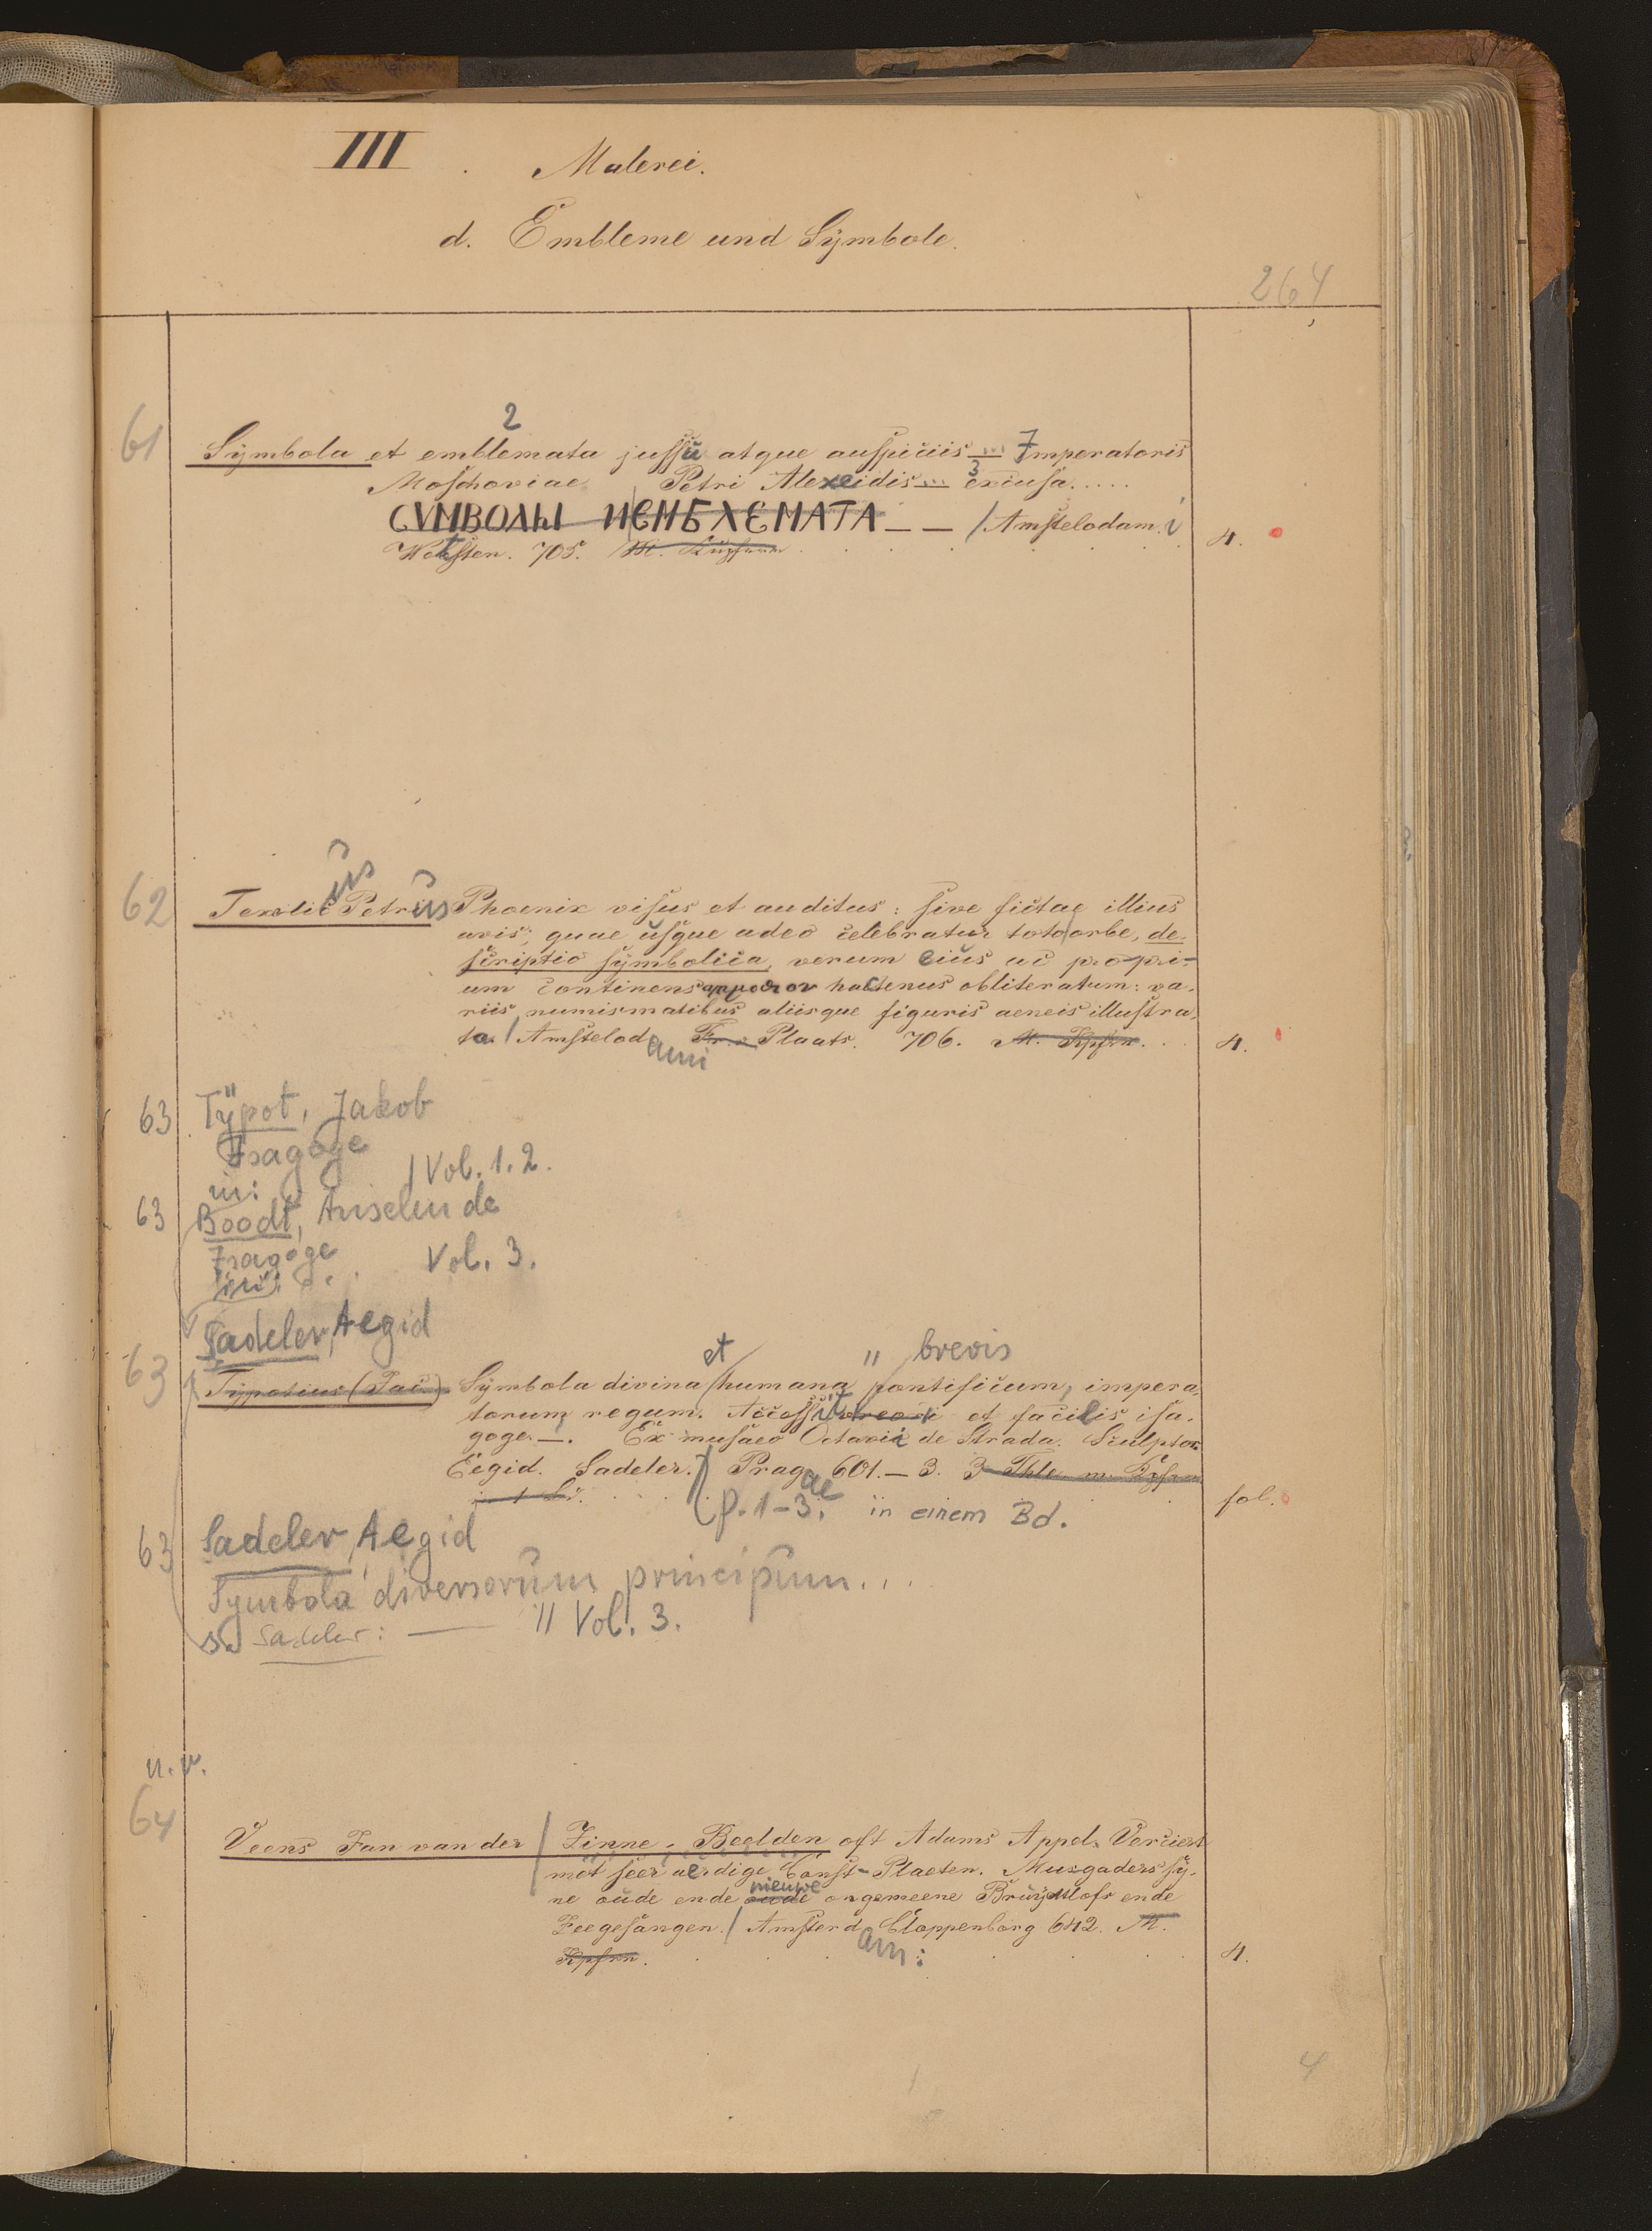 III . Malerei.
d. Embleme und Sÿmbole.
264
61
2
Sÿmbola et emblemata jussu atque auspiciis ... Imperatoris
Moschoviae Petri Alexeidis ... 3 excusa.....
СѴМВОЛЫ И ЄМБΛЄМАТА — — / Amstelodami
Wetsten. 705. M. Kupfern . . . . . 4.
62 Texelius Petrus Phoenix visus et auditus: sive fictae illius
avis, quae usque adeo celebratur toto orbe, de-
scriptio sÿmbolica, verum eius ac propri-
um continens hactenus obliteratum: va-
riis numismatibus aliisque figuris aeneis illustra-
ta / Amstelodami Fr. v. Plaats. 706. M. Kpfrn. . . 4.
63 Tÿpot, Jakob
Isagoge
in: / Vol. 1. 2.
63 Boodt, Anselm de
Isagoge Vol. 3.
in:
Sadeler, Aegid
et " brevis
63 Tÿpotius (Jac.) Sÿmbola divina / humana pontificum, impera-
torum, regum. Accessit brevis et facilis isa-
goge. —. Ex musaeo Octavii de Strada. Sculptor
Eegid. Sadeler. Pragae 601.— 3. 3 Thle m. Kpfrn
in 1 Bd. . . . p. 1-3. in einem Bd. fol.
63 Sadeler, Aegid
Symbola diversorum principum...
s. Sadeler: — " Vol. 3.
n. v.
64
Veens Jan van der / Zinne-Beelden oft Adams Appel. Verciert
met seer aerdige Const-Plaeten. Musgaders sÿ-
ne oude ende oude nieuwe ongemeene Bruÿdtlofs ende
Zeegesangen. / Amsterdam: Cloppenborg 642. M.
Kpfrn. . . . . 4.
4